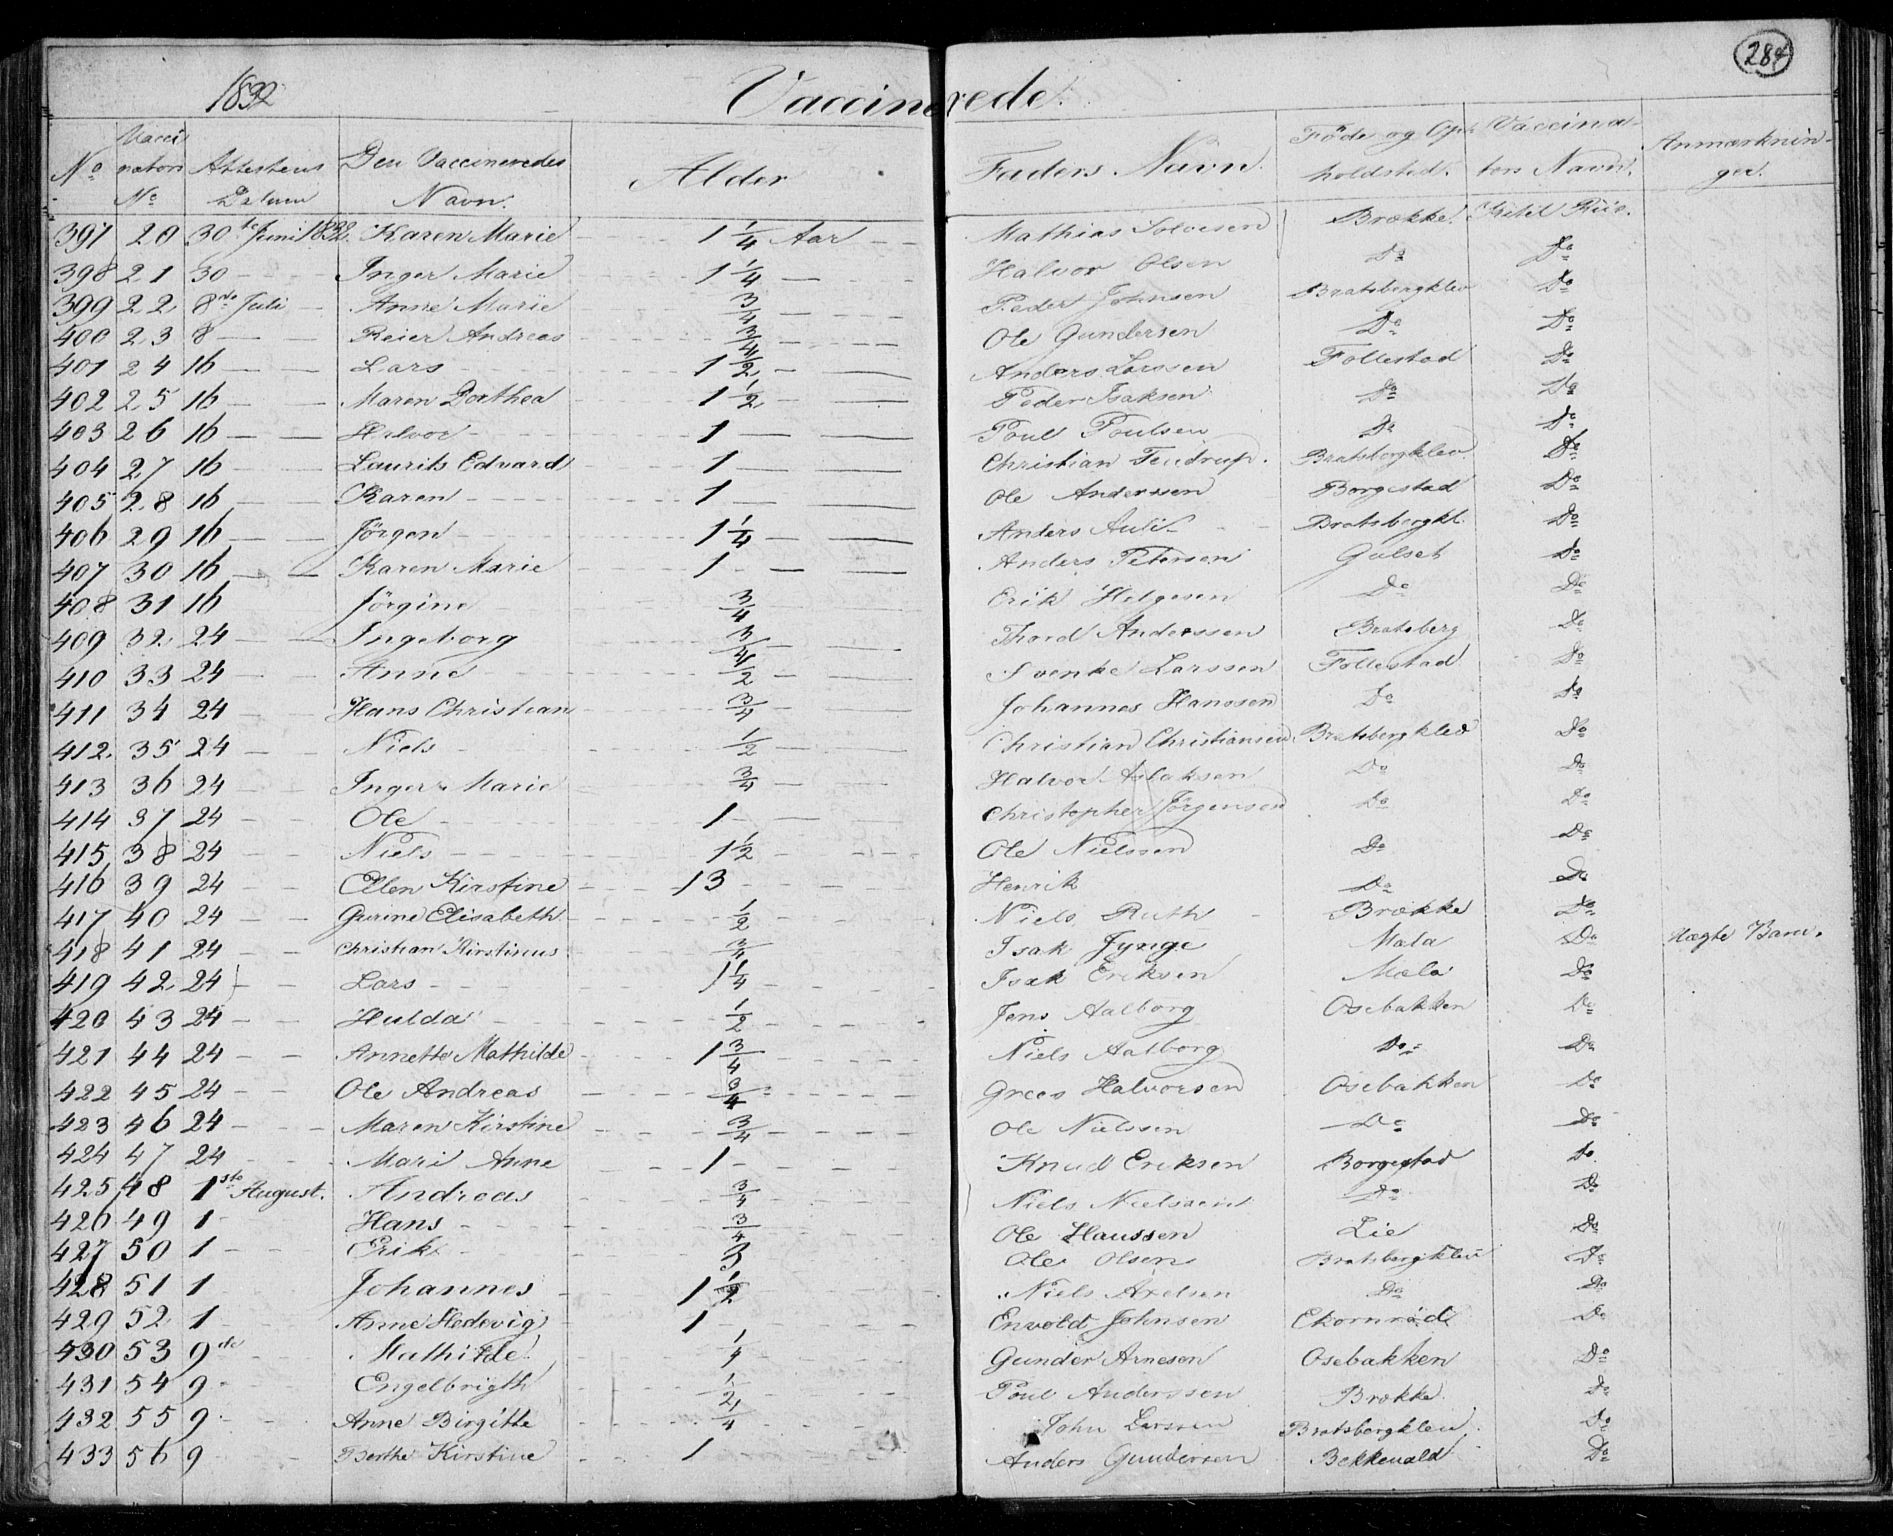 284
1832 Vaccinerede.
No Vaccinators No Attestens Datum Den Vaccineredes Navn. Alder Faders Navn. Føde og Opholdsted. Vaccinators Navn. Anmærkninger.
397 20 30te Juni 1832. Karen Marie 1 1/4 Aar Mathias Solvesen Brække. Ketil Riis.
398 21 30 Inger Marie 1 1/4 Halvor Olsen Do Do
399 22 8de Juli Anne Marie 3/4 Peder Johnsen Bratsbergklev Do
400 23 8 Reier Andreas 3/4 Ole Gundersen Do Do
401 24 16 Lars 1 1/2 Anders Larssen Follestad Do
402 25 16 Maren Dorthea 1 1/2 Peder Isaksen Do Do
403 26 16 Halvor 1 Poul Poulsen Do Do
404 27 16 Laurits Edvard 1 Christian Bratsbergklev Do
405 28 16 Karen 1 Ole Anderssen Borgestad Do
406 29 16 Jörgen 1 1/4 Anders Bratsbergkl. Do
407 30 16 Karen Marie 1 Anders Petersen Gulset Do
408 31 16 Jörgine 3/4 Erik Helgesen Do Do
409 32 24 Ingeborg 3/4 Thord Anderssen Bratsberg Do
410 33 24 Anne 1/2 Svenke Larssen Follestad Do
411 34 24 Hans Christian 3/4 Johannes Hanssen Do Do
412 35 24 Niels 1/2 Christian Christiansen Bratsbergklev Do
413 36 24 Inger Marie 3/4 Halvor Aslaksen Do Do
414 37 24 Ole 1 Christopher Jörgensen Do Do
415 38 24 Niels 1 1/2 Ole Nielssen Do Do
416 39 24 Ellen Kirstine 13 Henrik Do Do
417 40 24 Gurine Elisabeth 1/2 Niels Ruth Brække Do
418 41 24 Christian Kirstinus 3/4 Isak Jynge Mæla Do Uægte Barn.
419 42 24 Lars 1 1/4 Isak Eriksen Mæla Do
420 43 24 Hulda 1/2 Jens Aalborg Osebakken Do
421 44 24 Annette Mathilde 1 3/4 Niels Aalborg Do Do
422 45 24 Ole Andreas 3/4 Grees Halvorsen Osebakken Do
423 46 24 Maren Kirstine 3/4 Ole Nielssen Do Do
424 47 24 Mari Anne 1 Knud Eriksen Borgestad Do
425 48 1ste August. Andreas 3/4 Niels Nielssen Do Do
426 49 1 Hans 3/4 Ole Hanssen Lie Do
427 50 1 Erik 3 Ole Olsen Bratsbergklev Do
428 51 1 Johannes 1 1/2 Niels Axelsen Do Do
429 52 1 Anne Hedevig 1 Envold Johnsen Ekornrød Do
430 53 9de Mathilde 1/4 Gunder Arnesen Osebakken Do
431 54 9 Engelbrigth 1/2 Poul Anderssen Brække Do
432 55 9 Anne Birgitte 1/4 John Larssen Bratsbergklev Do
433 56 9 Berthe Kirstine 1 Anders Gundersen Bekkevold Do